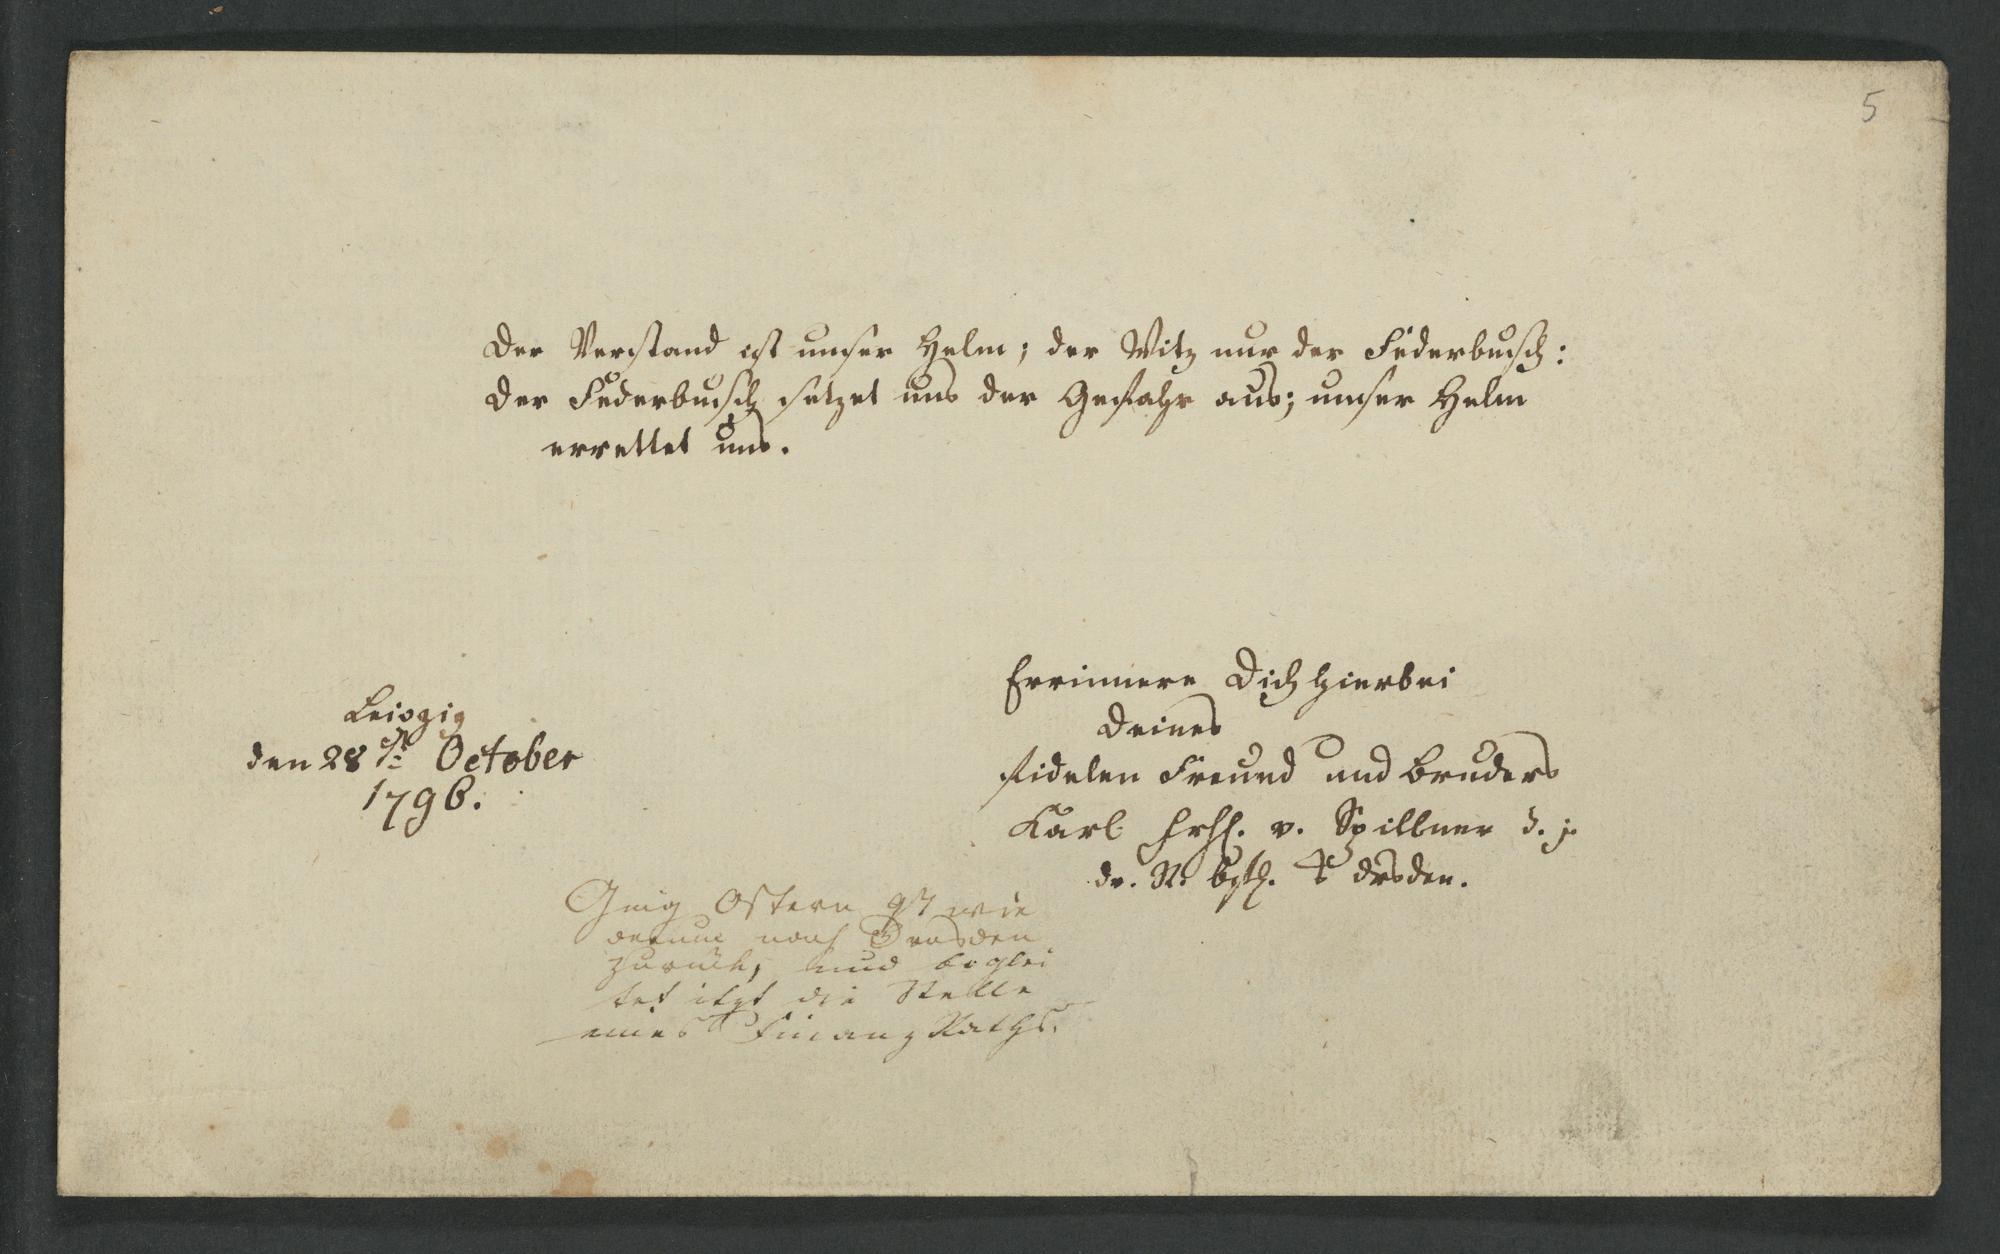 5
Der Verstand ist unser Helm; der Witz nur der Federbusch:
Der Federbusch setzet uns der Gefahr aus; unser Helm
errettet uns.
Leipzig
den 28st: October
1796.
Errinnere Dich hierbei
Deines
fidelen Freund und Bruders
Karl v. Spillner d. j.
d. R. Dresden.
Ging Ostern 97 wie
nach Dresden
zurück, und beglei
tet itzt die Stelle
eines Finanz Raths.